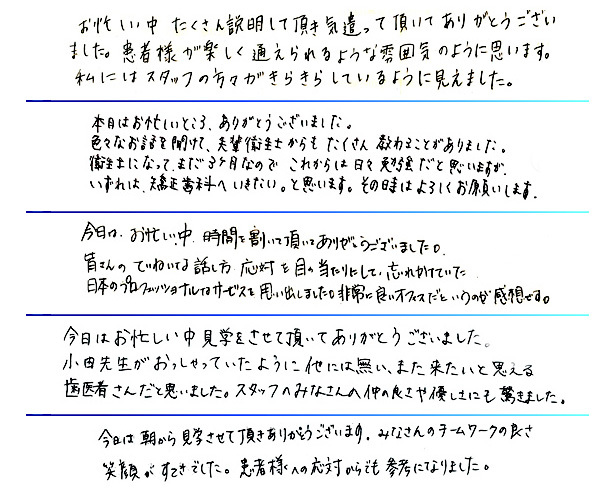 お忙しい中 たくさん説明して頂き気遣って頂いてありがとうござい
ました。患者様が楽しく通えられるような雰囲気のように思います。
私にはスタッフの方々がきらきらしているように見えました。
本日はお忙しいところ、ありがとうございました。
色々なお話を聞けて、先輩衛生士からも たくさん 教わることがありました。
衛生士になって、まだ3ヶ月なので これからは日々 勉強だと思いますが、
いずれは、矯正歯科へいきたい。と思います。その時はよろしくお願いします。
今日は、お忙しい中、時間を割いて頂いてありがとうございました。
皆さんの ていねいな話し方、応対を目の当たりにして、忘れかけていた
日本のプロフェッショナルなサービスを思い出しました。非常に良いオフィスだというのが感想です。
今日はお忙しい中見学をさせて頂いてありがとうございました。
小田先生がおっしゃっていたように他には無い、また来たいと思える
歯医者さんだと思いました。スタッフのみなさんの仲の良さや優しさにも驚きました。
今日は朝から見学させて頂きありがとうございます。みなさんのチームワークの良さ
笑顔がすてきでした。患者様への応対からも参考になりました。